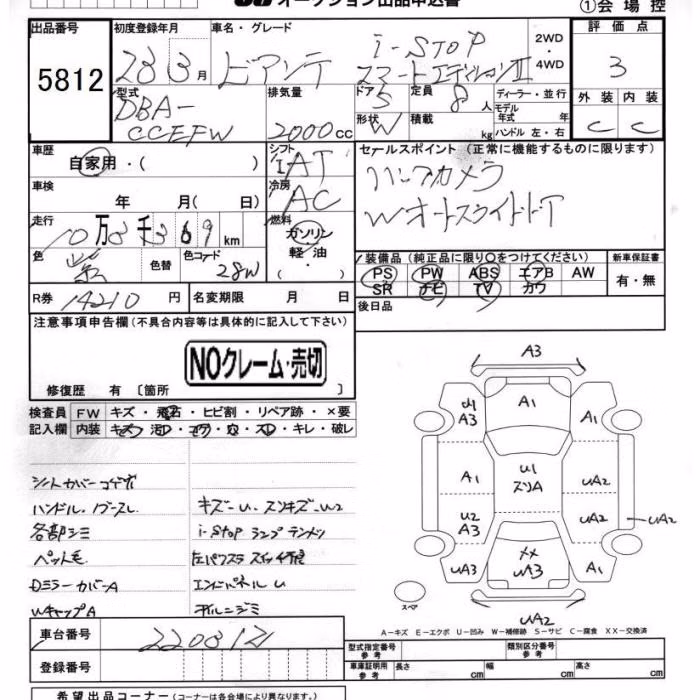 オークション出品申込書
①会場控
出品番号
5812
初度登録年月
28 3月
車名・グレード
ビアンテ
i-STOP
スマートエディションⅡ
2WD
4WD
評価点
3
外装
内装
C
C
型式
DBA-
CCEFW
排気量
2000cc
ドア
5
形状
W
定員
8人
積載
kg
ディーラー・並行
モデル年式
年
ハンドル 左・右
車歴
自家用・( )
シフト
IAT
セールスポイント (正常に機能するものに限ります)
バックカメラ
Wオートスライドドア
車検
年 月( 日)
冷房
AC
走行
10万8千369km
燃料
ガソリン
軽油
・
( )
色
紫
色替
色コード
28W
装備品(純正品に限り○をつけてください)
PS PW ABS エアB AW
SR ナビ TV カワ
新車保証書
有・無
R券
14210円
名変期限 月 日
後日品
注意事項申告欄(不具合内容等は具体的に記入して下さい)
NOクレーム・売切
修復歴 有 〔箇所 〕
検査員
記入欄
FW キズ・飛石・ヒビ割・リペア跡・×要
内装 キズ・汚レ・コゲ・穴・スレ・キレ・破レ
シートカバーコゲ穴
ハンドル・ノブスレ
各部シミ
ペット毛
DミラーカバーA
WキャップA
キズ-U・スリキズ-W2
i-STOPランプテンメツ
左パワスラスイッチ不良
エンドパネルU
A3
U1
A3
A1
A1
A1
U1
スリA
UA2
U2
A3
UA2
UA2
UA3
XX
UA3
A1
UA2
スペア
A-キズ E-エクボ U-凹み W-補修跡 S-サビ C-腐食 XX-交換済
車台番号
220812
登録番号
型式指定番号
参考
類別区分番号
参考
車庫証明用
参考
長さ cm
幅 cm
高さ cm
希望出品コーナー(コーナー名は各会場により異なります。)